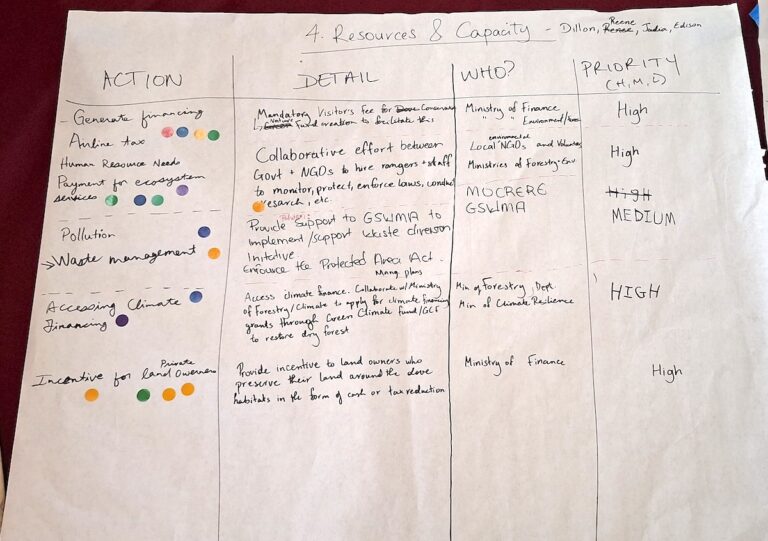 4. Resources & Capacity - Dillon, Renee, Reene, Jadia, Edison
ACTION
DETAIL
WHO?
PRIORITY
(H, M, L)
- Generate financing
Airline tax
Mandatory Visitor's Fee for Dove Conservancy
Nature
↳ Green Fund creation to facilitate this
Ministry of Finance
" " Environment/
High
Human Resource Needs
Payment for ecosystem
services
Collaborative effort between
Govt + NGOs to hire rangers + staff
to monitor, protect, enforce laws, conduct
research, etc.
environmental
Local NGOs and Voluntary
Ministries of Forestry + Env
High
Pollution
→ Waste management
Provide support to GSWMA to
implement/support waste diversion
Initiative
Enforce the Protected Area Act.
Mang. plans
MOCRERE
GSWMA
High
MEDIUM
Accessing Climate
Financing
Access climate finance. Collaborate w/Ministry
of Forestry/Climate to apply for climate financing
grants through Green Climate Fund/GCF
to restore dry forest
Min of Forestry, Dept.
Min of Climate Resilience
HIGH
Private
Incentive for land Owerners
Provide incentive to land owners who
preserve their land around the dove
habitats in the form of cash or tax reduction
Ministry of Finance
High